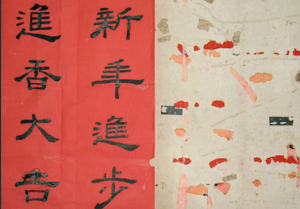 新年進步
進香大吉